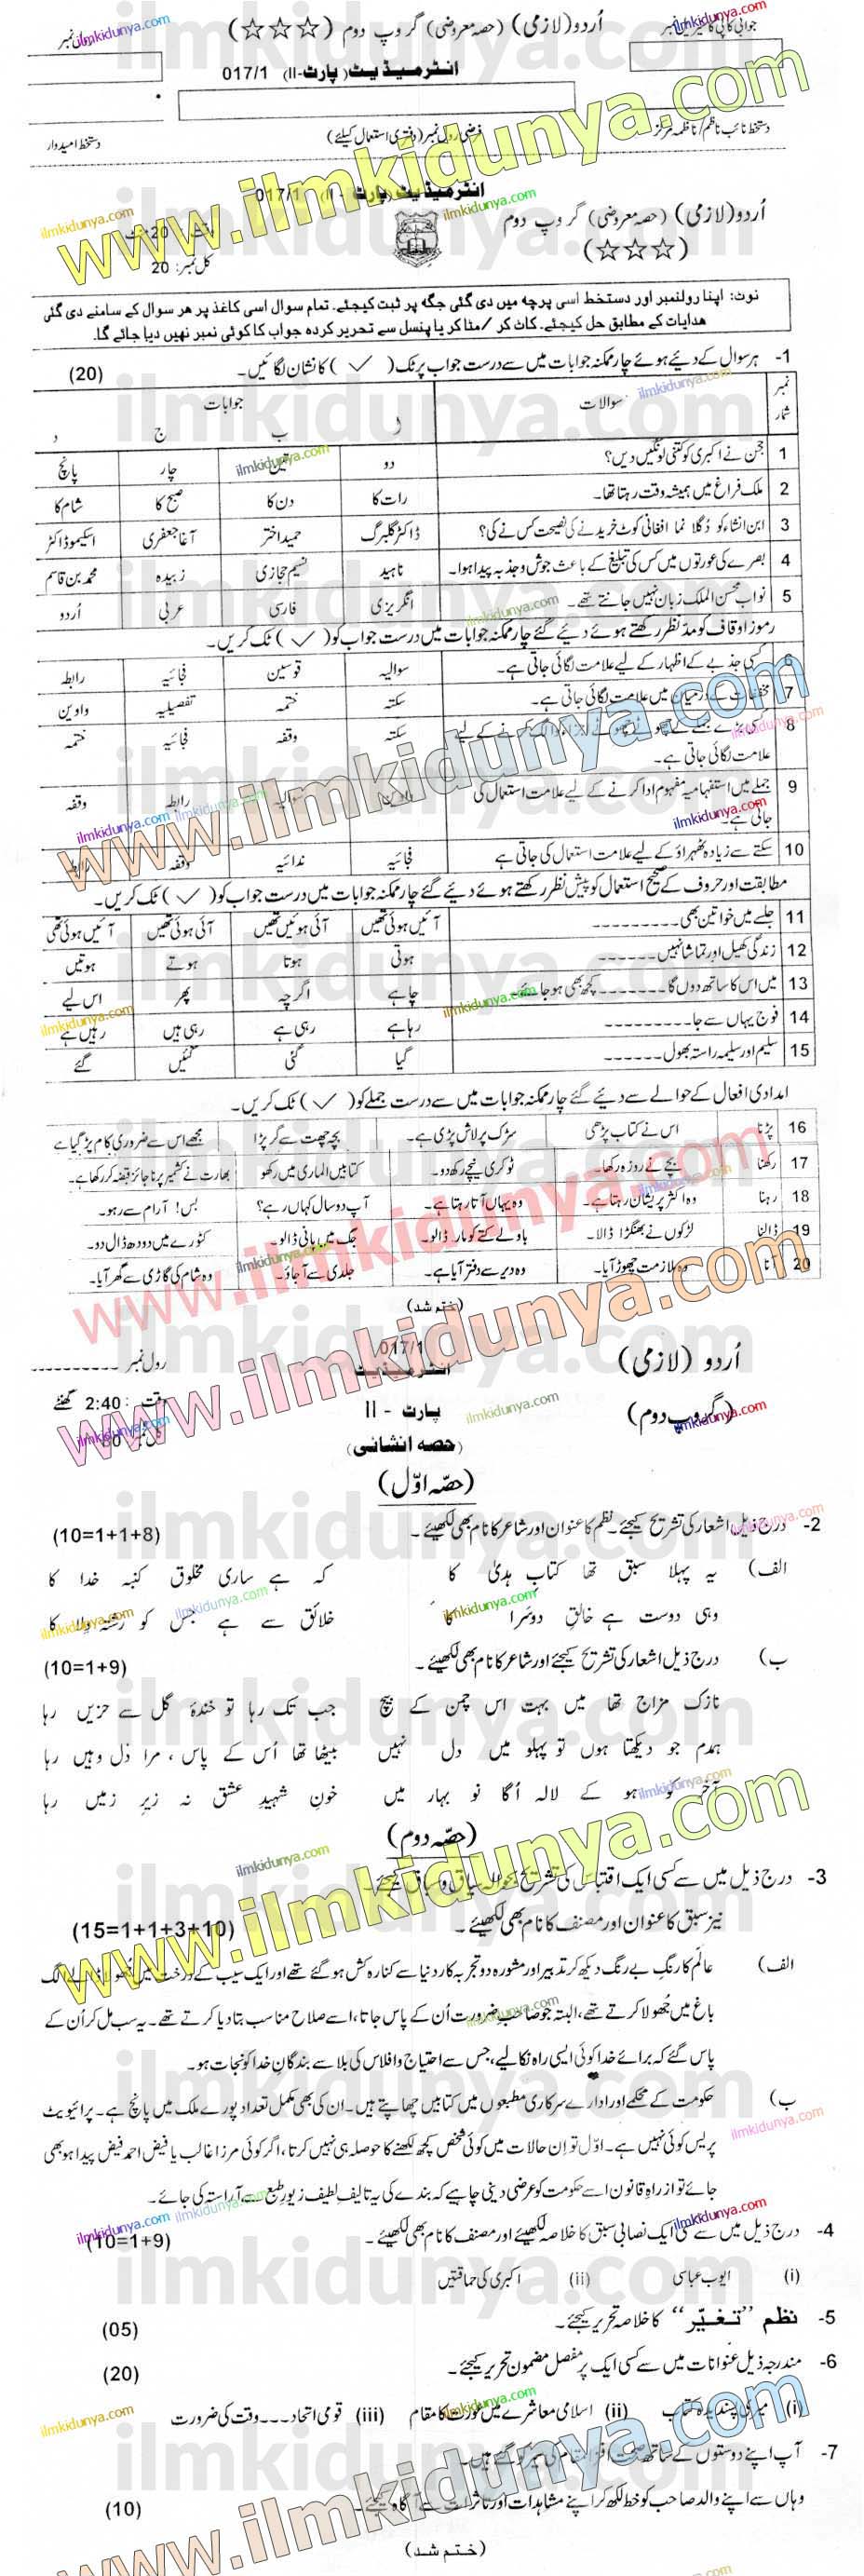 اُردو(لازمی) (حصہ معروضی) گروپ دوم (☆☆☆)
انٹرمیڈیٹ( پارٹ-II) 017/1
دستخط نائب ناظم/ناظمہ مرکز
فرضی رول نمبر (دفتری استعمال کیلئے)
دستخط امیدوار
انٹرمیڈیٹ( پارٹ - II) 017/1
اُردو(لازمی) (حصہ معروضی) گروپ دوم
(☆☆☆)
کل نمبر: 20
نوٹ: اپنا رولنمبر اور دستخط اسی پرچہ میں دی گئی جگہ پر ثبت کیجئے. تمام سوال اسی کاغذ پر ہر سوال کے سامنے دی گئی
ہدایات کے مطابق حل کیجئے. کاٹ کر /مٹا کر یا پنسل سے تحریر کردہ جواب کا کوئی نمبر نہیں دیا جائے گا.
1- ہر سوال کے دیئے ہوئے چار ممکنہ جوابات میں سے درست جواب پر ٹک ( ✓ ) کا نشان لگائیں۔ (20)
نمبر شمار سوالات جوابات
ا ب ج د
1 جن نے اکبری کو کتنی لونگیں دیں؟ دو تین چار پانچ
2 ملک فراغ میں ہمیشہ وقت رہتا تھا۔ رات کا دن کا صبح کا شام کا
3 ابن انشاء کو دُگلا نما افغانی کوٹ خریدنے کی نصیحت کس نے کی؟ ڈاکٹر گلبرگ حمید اختر آغا جعفری اسکیمو ڈاکٹر
4 بصرے کی عورتوں میں کس کی تبلیغ کے باعث جوش و جذبہ پیدا ہوا۔ ناہید نسیم حجازی زبیدہ محمد بن قاسم
5 نواب محسن الملک زبان نہیں جانتے تھے۔ انگریزی فارسی عربی اُردو
رموز اوقاف کو مدنظر رکھتے ہوئے دیئے گئے چار ممکنہ جوابات میں درست جواب کو ( ✓ ) ٹک کریں۔
6 کسی جذبے کے اظہار کے لیے علامت لگائی جاتی ہے۔ سوالیہ قوسین فجائیہ رابطہ
7 مخففات کے درمیان میں علامت لگائی جاتی ہے۔ سکتہ ختمہ تفصیلیہ واوین
8 کسی بڑے جملے کے چھوٹے چھوٹے کے لیے سکتہ وقفہ فجائیہ ختمہ
علامت لگائی جاتی ہے۔
9 جملے میں استفہامیہ مفہوم ادا کرنے کے لیے علامت استعمال کی سوالیہ رابطہ وقفہ
جاتی ہے۔
10 سکتے سے زیادہ ٹھہراؤ کے لیے علامت استعمال کی جاتی ہے فجائیہ ندائیہ وقفہ رابطہ
مطابقت اور حروف کے صحیح استعمال کو پیش نظر رکھتے ہوئے دیئے گئے چار ممکنہ جوابات میں درست جواب کو ( ✓ ) ٹک کریں۔
11 جلسے میں خواتین بھی--------- آئیں ہوئی تھیں آئی ہوئیں تھیں آئی ہوئی تھیں آئیں ہوئی تھی
12 زندگی کھیل اور تماشا نہیں------ ہوتی ہوتا ہوتے ہوتیں
13 میں اس کا ساتھ دوں گا------- کچھ بھی ہو جائے۔ چاہے اگرچہ پھر اس لیے
14 فوج یہاں سے جا--------- رہا ہے رہی ہے رہی ہیں رہیں ہے
15 سلیم اور سلیمہ راستہ بھول------ گیا گئی گئیں گئے
امدادی افعال کے حوالے سے دیئے گئے چار ممکنہ جوابات میں سے درست جملے کو ( ✓ ) ٹک کریں۔
16 پڑنا اس نے کتاب پڑھی سڑک پر لاش پڑی ہے۔ بچہ چھت سے گر پڑا مجھے اس سے ضروری کام پڑ گیا ہے
17 رکھنا بچے نے روزہ رکھا۔ ٹوکری نیچے رکھ دو۔ کتابیں الماری میں رکھو بھارت نے کشمیر پر ناجائز قبضہ کر رکھا ہے۔
18 رہنا وہ اکثر پریشان رہتا ہے۔ وہ یہاں آتا رہتا ہے۔ آپ دو سال کہاں رہے؟ بس! آرام سے رہو۔
19 ڈالنا لڑکوں نے بھنگڑا ڈالا۔ باولے کتے کو مار ڈالو۔ جگ میں پانی ڈالو۔ کٹورے میں دودھ ڈال دو۔
20 آنا وہ ملازمت چھوڑ آیا۔ وہ دیر سے دفتر آیا ہے۔ جلدی سے آ جاؤ۔ وہ شام کی گاڑی سے گھر آیا۔
(ختم شد)
017/1
اُردو (لازمی) انٹرمیڈیٹ رول نمبر ----------
(گروپ دوم) پارٹ - II وقت : 2:40 گھنٹے
(حصہ انشائی)
(حصّہ اوّل)
2- درج ذیل اشعار کی تشریح کیجئے۔ نظم کا عنوان اور شاعر کا نام بھی لکھیئے۔ (10=1+1+8)
الف) یہ پہلا سبق تھا کتاب ہدیٰ کا کہ ہے ساری مخلوق کنبہ خدا کا
وہی دوست ہے خالقِ دوسَرا کا خلائق سے ہے جس کو رشتہ ولا کا
ب) درج ذیل اشعار کی تشریح کیجئے اور شاعر کا نام بھی لکھیئے۔ (10=1+9)
نازک مزاج تھا میں بہت اس چمن کے بیچ جب تک رہا تو خندۂ گل سے حزیں رہا
ہمدم جو دیکھتا ہوں تو پہلو میں دل نہیں بیٹھا تھا اُس کے پاس ، مرا دل وہیں رہا
آخر کو ہو کے لالہ اُگا نو بہار میں خونِ شہیدِ عشق نہ زیرِ زمیں رہا
(حصّہ دوم)
3- درج ذیل میں سے کسی ایک اقتباس کی تشریح بحوالہ سیاق و سباق کیجئے۔
نیز سبق کا عنوان اور مصنف کا نام بھی لکھیئے۔ (15=1+1+3+10)
الف) عالَم کا رنگِ بے رنگ دیکھ کر تدبیر اور مشورہ دو تجربہ کار دنیا سے کنارہ کش ہو گئے تھے اور ایک سیب کے درخت میں جُھولا ڈالے الگ
باغ میں جُھولا کرتے تھے، البتہ جو صاحبِ ضرورت اُن کے پاس جاتا، اسے صلاح مناسب بتا دیا کرتے تھے۔ یہ سب مل کر اُن کے
پاس گئے کہ برائے خدا کوئی ایسی راہ نکالیے، جس سے احتیاج و افلاس کی بلا سے بندگانِ خدا کو نجات ہو۔
ب) حکومت کے محکمے اور ادارے سرکاری مطبعوں میں کتابیں چھاپتے ہیں۔ ان کی بھی مکمل تعداد پورے ملک میں پانچ ہے۔ پرائیویٹ
پریس کوئی نہیں ہے۔ اوّل تو اِن حالات میں کوئی شخص کچھ لکھنے کا حوصلہ ہی نہیں کرتا، اگر کوئی مرزا غالب یا فیض احمد فیض پیدا ہو بھی
جائے تو از راہِ قانون اسے حکومت کو عرضی دینی چاہیے کہ بندے کی یہ تالیفِ لطیف زیورِ طبع سے آراستہ کی جائے۔
4- درج ذیل میں سے کسی ایک نصابی سبق کا خلاصہ لکھیئے اور مصنف کا نام بھی لکھیئے۔ (10=1+9)
(i) ایوب عباسی (ii) اکبری کی حماقتیں
5- نظم "تغیّر" کا خلاصہ تحریر کیجئے۔ (05)
6- مندرجہ ذیل عنوانات میں سے کسی ایک پر مفصل مضمون تحریر کیجئے۔ (20)
(i) میری پسندیدہ کتاب (ii) اسلامی معاشرے میں عورت کا مقام (iii) قومی اتحاد --- وقت کی ضرورت
7- آپ اپنے دوستوں کے ساتھ صحت افزا مقام کی سیر کو گئے ہیں۔
وہاں سے اپنے والد صاحب کو خط لکھ کر اپنے مشاہدات اور تاثرات سے آگاہ کیجئے۔ (10)
(ختم شد)
www.ilmkidunya.com
ilmkidunya.com